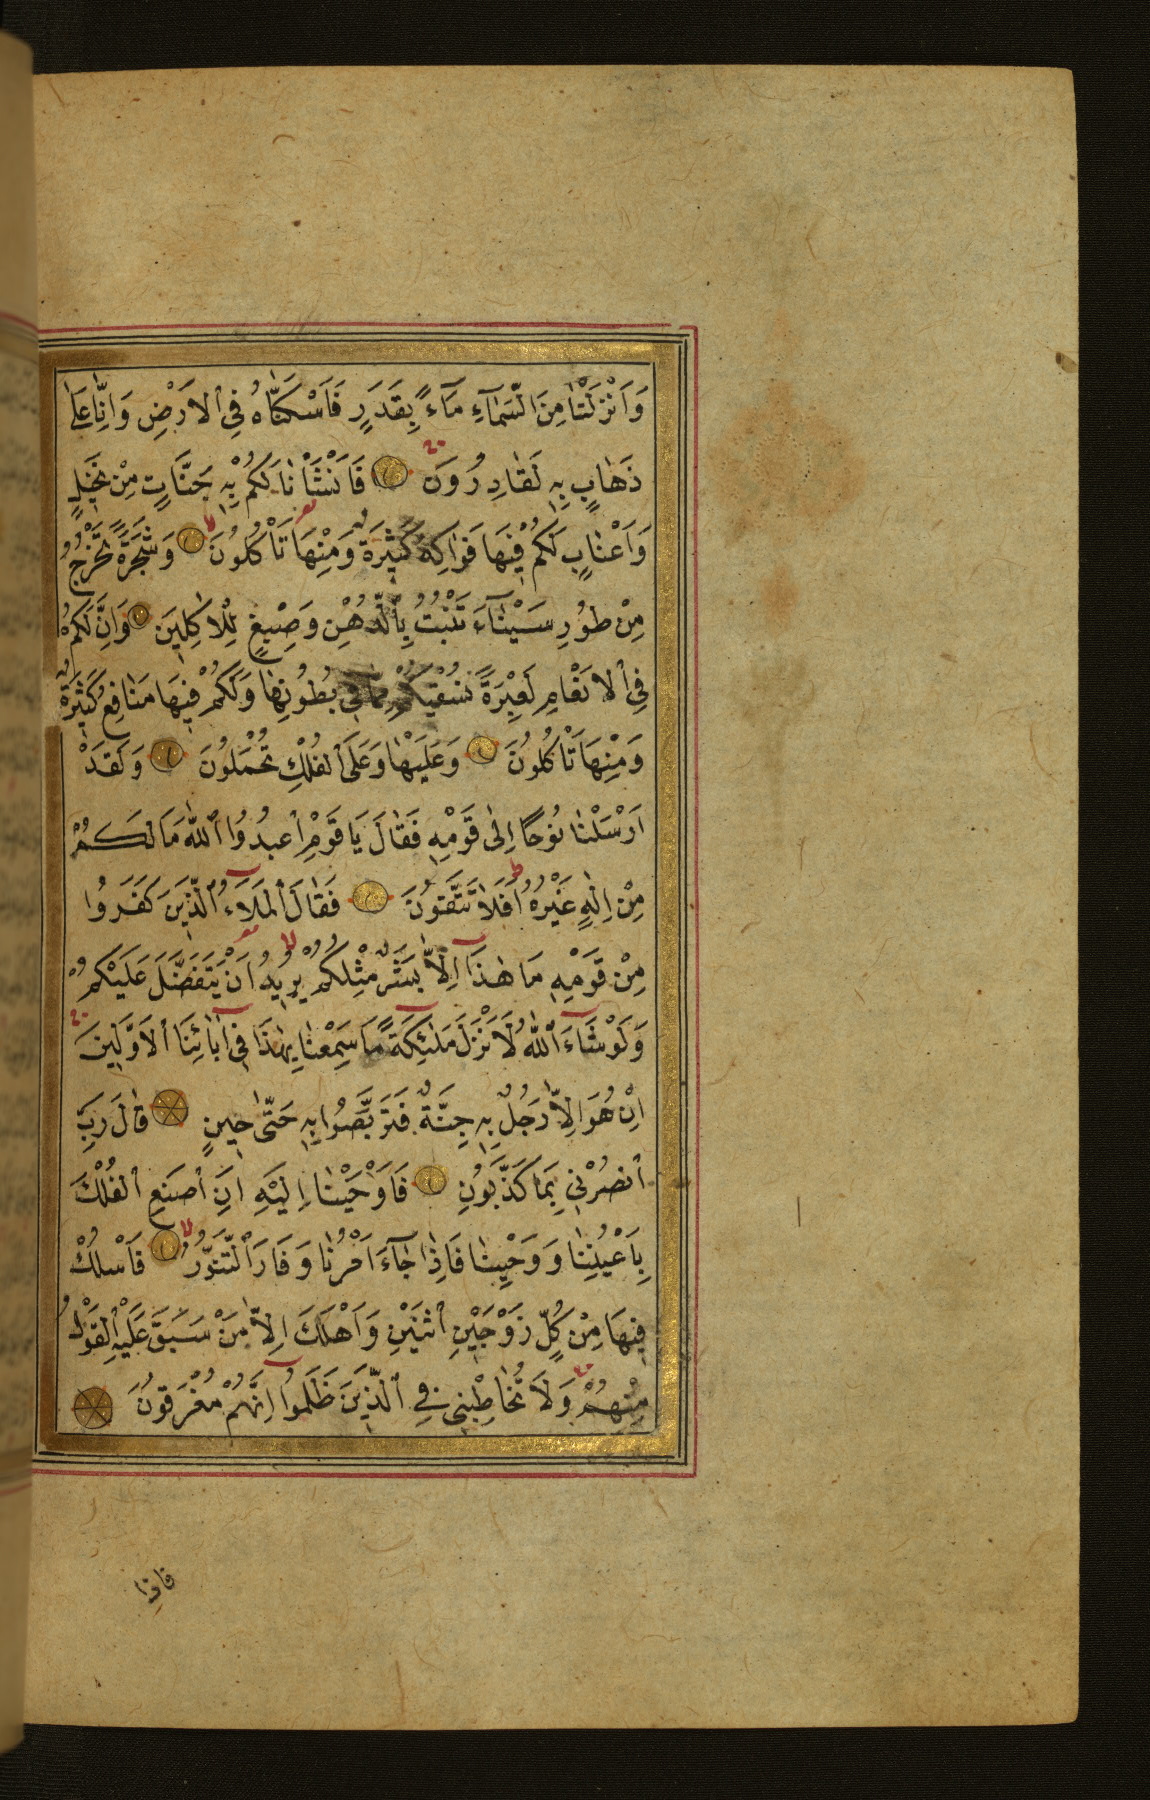 وَاَنْزَلْنَا مِنَ السَّمَآءِ مَآءً بِقَدَرٍ فَاَسْكَنَّاهُ فِي ٱلْاَرْضِ وَاِنَّا عَلٰى
ذَهَابٍ بِهِ لَقَادِرُونَ فَاَنْشَأْنَا لَكُمْ بِهِ جَنَّاتٍ مِنْ نَخِيلٍ
وَاَعْنَابٍ لَكُمْ فِيهَا فَوَاكِهُ كَثِيرَةٌ وَمِنْهَا تَأْكُلُونَ وَشَجَرَةً تَخْرُجُ
مِنْ طُورِ سَيْنَآءَ تَنْبُتُ بِٱلدُّهْنِ وَصِبْغٍ لِلْاٰكِلِينَ وَاِنَّ لَكُمْ
فِي ٱلْاَنْعَامِ لَعِبْرَةً نُسْقِيكُمْ مِمَّا فِي بُطُونِهَا وَلَكُمْ فِيهَا مَنَافِعُ كَثِيرَةٌ
وَمِنْهَا تَأْكُلُونَ وَعَلَيْهَا وَعَلَى ٱلْفُلْكِ تُحْمَلُونَ وَلَقَدْ
اَرْسَلْنَا نُوحًا اِلٰى قَوْمِهِ فَقَالَ يَا قَوْمِ ٱعْبُدُوا ٱللّٰهَ مَا لَكُمْ
مِنْ اِلٰهٍ غَيْرُهُ اَفَلَا تَتَّقُونَ فَقَالَ ٱلْمَلَاءُ ٱلَّذِينَ كَفَرُوا
مِنْ قَوْمِهِ مَا هٰذَا اِلَّا بَشَرٌ مِثْلُكُمْ يُرِيدُ اَنْ يَتَفَضَّلَ عَلَيْكُمْ
وَلَوْ شَآءَ ٱللّٰهُ لَاَنْزَلَ مَلٰئِكَةً مَا سَمِعْنَا بِهٰذَا فِي اٰبَائِنَا ٱلْاَوَّلِينَ
اِنْ هُوَ اِلَّا رَجُلٌ بِهِ جِنَّةٌ فَتَرَبَّصُوا بِهِ حَتّٰى حِينٍ قَالَ رَبِّ
ٱنْصُرْنِي بِمَا كَذَّبُونِ فَاَوْحَيْنَا اِلَيْهِ اَنِ ٱصْنَعِ ٱلْفُلْكَ
بِاَعْيُنِنَا وَوَحْيِنَا فَاِذَا جَآءَ اَمْرُنَا وَفَارَ ٱلتَّنُّورُ فَاسْلُكْ
فِيهَا مِنْ كُلٍّ زَوْجَيْنِ ٱثْنَيْنِ وَاَهْلَكَ اِلَّا مَنْ سَبَقَ عَلَيْهِ ٱلْقَوْلُ
مِنْهُمْ وَلَا تُخَاطِبْنِي فِي ٱلَّذِينَ ظَلَمُوا اِنَّهُمْ مُغْرَقُونَ
فاذا